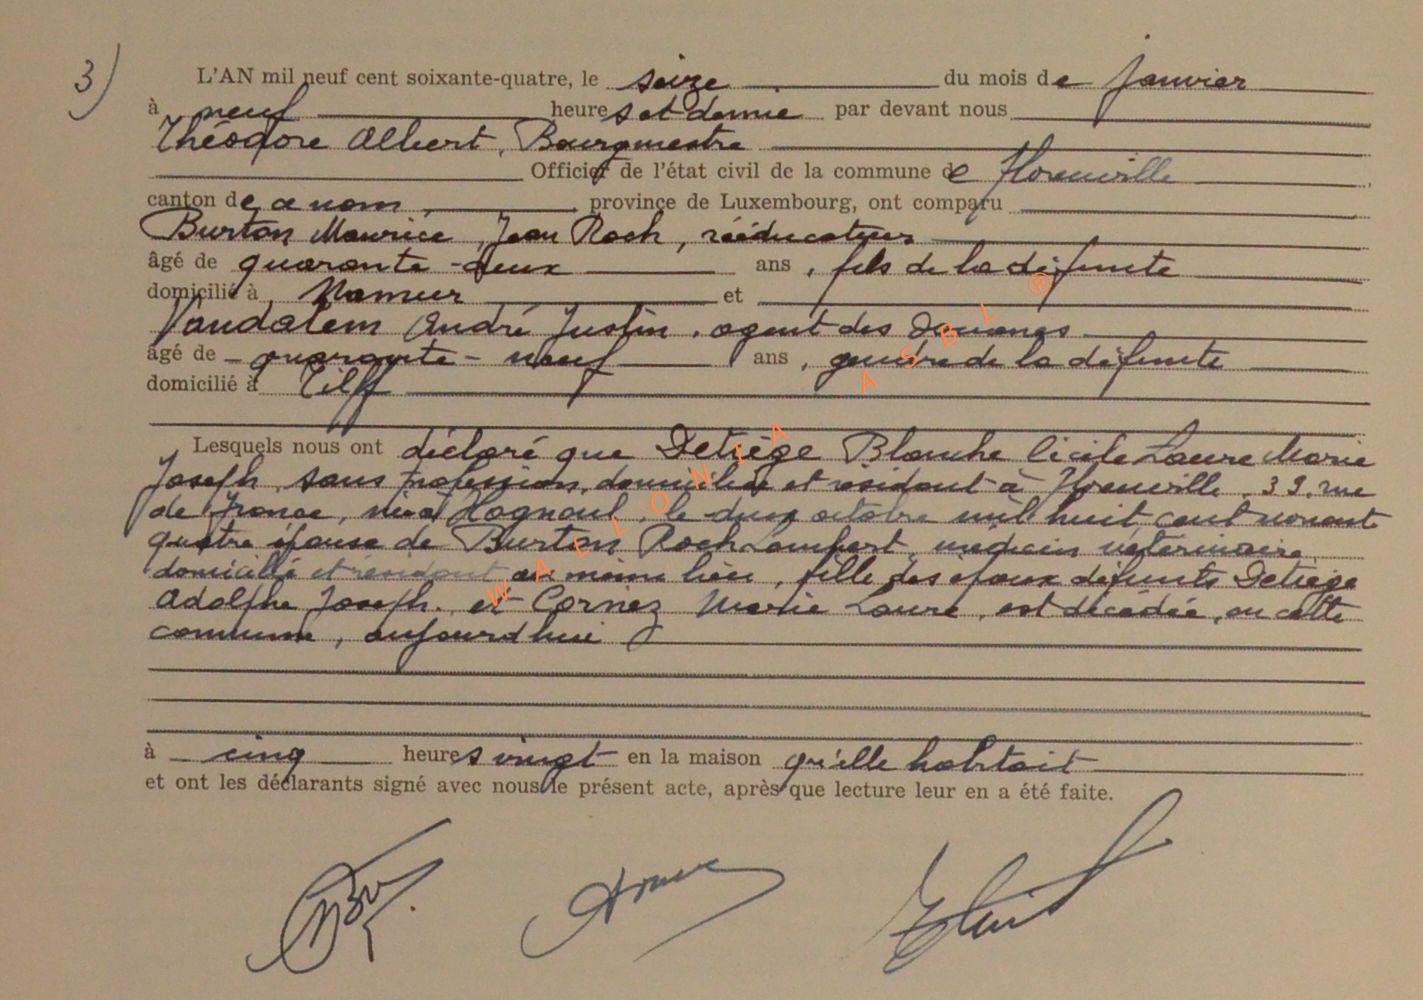 3)
L'AN mil neuf cent soixante-quatre, le seize du mois de janvier
à neuf heures et demie par devant nous
Théodore Albert, Bourgmestre
Officier de l'état civil de la commune de Florenville
canton de ce nom, province de Luxembourg, ont comparu
Burton Maurice, Jean Roch, rééducateur
âgé de quarante-deux ans, fils de la défunte
domicilié à Namur et
Vandalem André Justin, agent des Douanes
âgé de quarante-neuf ans, gendre de la défunte
domicilié à Tilff
Lesquels nous ont déclaré que Detiège Blanche Cécile Laure Marie
Joseph, sans profession, domiciliée et résidant à Florenville, 39, rue
de France, née à Hognoul, le deux octobre mil huit cent nonante
quatre épouse de Burton Roch Lambert, médecin vétérinaire
domicilié et résidant au même lieu, fille des époux défunts Detiège
Adolphe Joseph et Cornez Marie Laure, est décédée, en cette
commune, aujourd'hui
à cinq heures vingt en la maison qu'elle habitait
et ont les déclarants signé avec nous le présent acte, après que lecture leur en a été faite.
WAELONIA ASBL ®